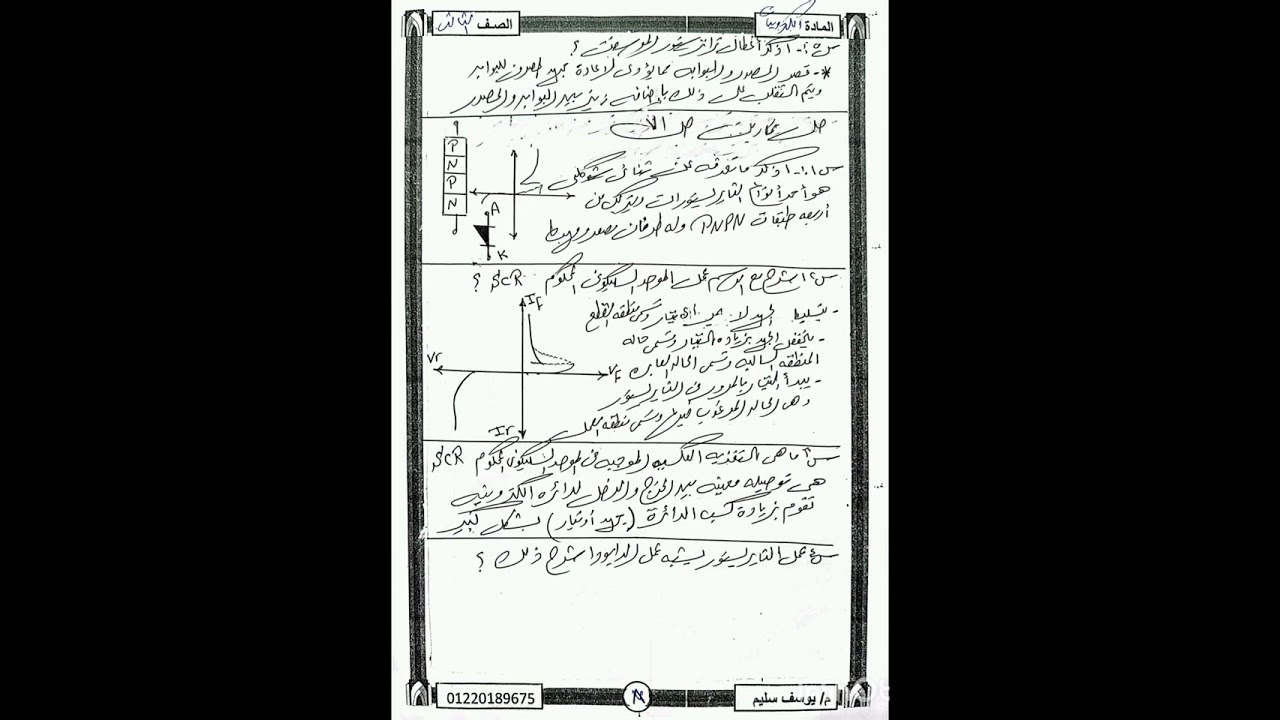 المادة الكترونيات
الصف الثالث
س٥:- اذكر أعطال ترانزستور الموسفت ؟
*- قصر المصدر والبوابه مما يؤدى لاعادة جهد المصدر للبوابه
ويتم التغلب على ذلك بإضافة زينر بين البوابه والمصدر
حل تمارين
س١:- اذكر ما تعرفه عن ثنائى شوكلى
هو أحد أنواع الثايرستورات ويتركب من
أربعه طبقات PNPN وله طرفان مصعد ومهبط
P
N
P
N
A
K
س٢ اشرح مع الرسم عمل الموحد السليكونى المحكوم SCR ؟
- بتسليط الجهد لا يمر أى تيار وتسمى منطقه القطع
- ينخفض الجهد بزياده التيار وتسمى حاله
المنطقه السالبه وتسمى الحاله العابره
- يبدأ التيار بالمرور فى الثايرستور
وهى الحاله المرغوب فيها وتسمى منطقه العمل
IF
Vr
VF
Ir
س٣ ما هى التغذيه العكسيه الموجبه فى الموحد السليكونى المحكوم SCR
هى توصيله معينه بين الخرج والدخل لدائره الكترونيه
تقوم بزيادة كسب الدائرة (جهد أو تيار) بشكل كبير
س٤ عمل الثايرستور يشبه عمل الدايود اشرح ذلك ؟
01220189675
م/ يوسف سليم